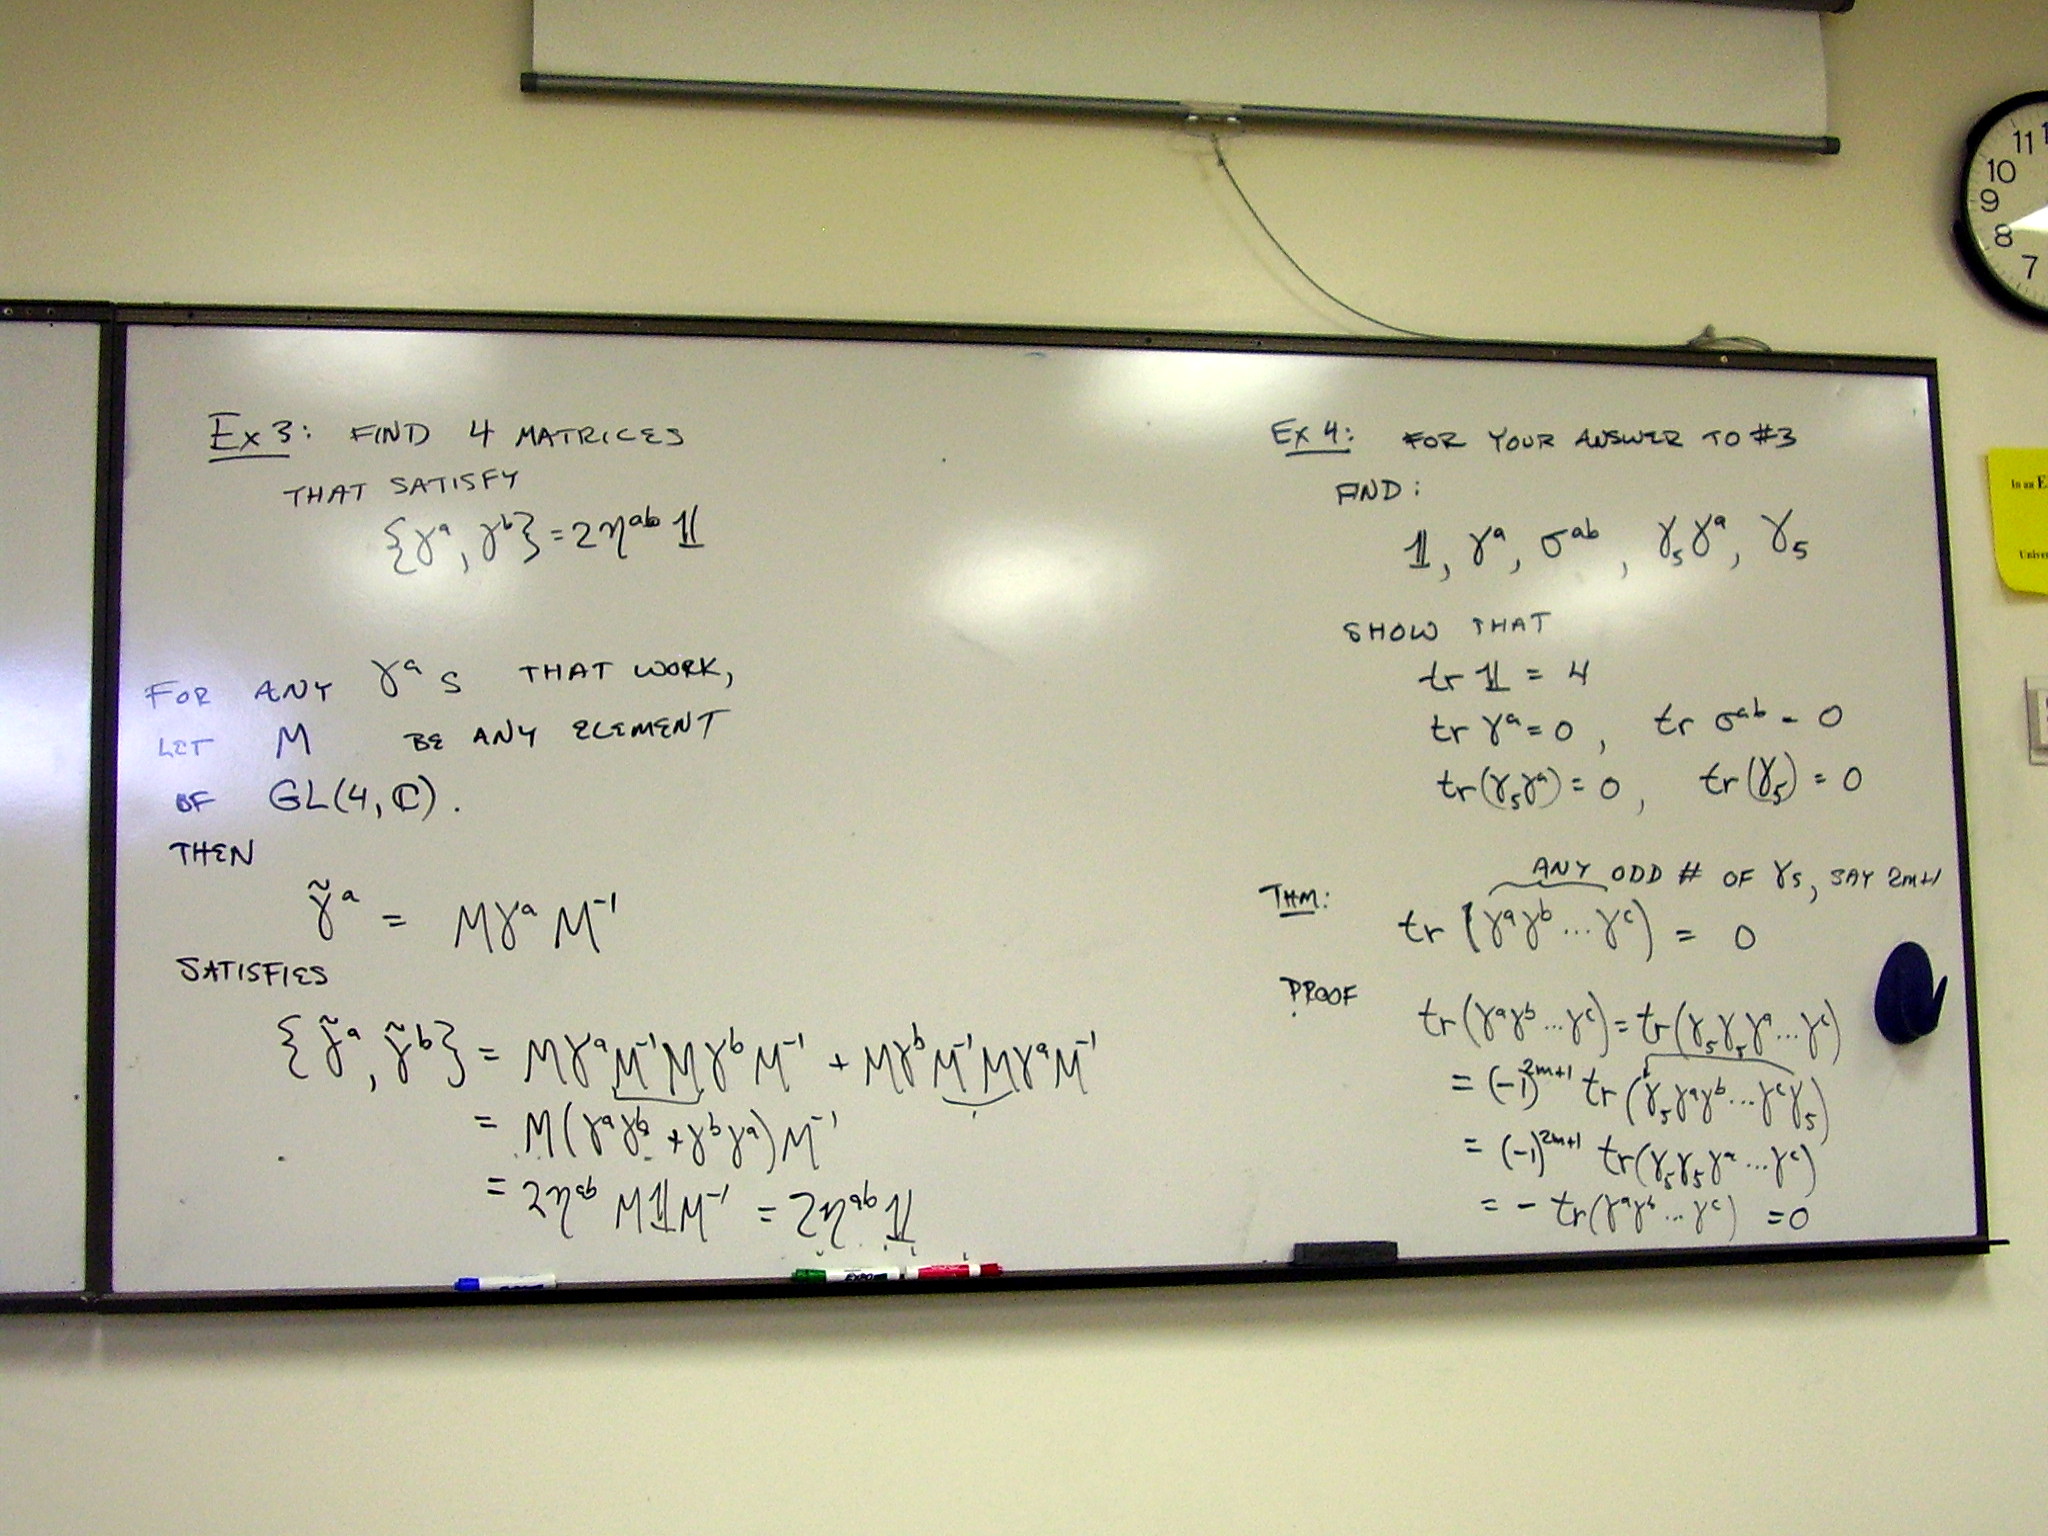 Ex 3: FIND 4 MATRICES
THAT SATISFY
{γᵃ, γᵇ} = 2ηᵃᵇ 𝟙
FOR ANY γᵃs THAT WORK,
LET M BE ANY ELEMENT
OF GL(4, ℂ).
THEN
γ̃ᵃ = Mγᵃ M⁻¹
SATISFIES
{γ̃ᵃ, γ̃ᵇ} = MγᵃM⁻¹MγᵇM⁻¹ + MγᵇM⁻¹MγᵃM⁻¹
= M(γᵃγᵇ + γᵇγᵃ)M⁻¹
= 2ηᵃᵇ M𝟙M⁻¹ = 2ηᵃᵇ𝟙
Ex 4: FOR YOUR ANSWER TO #3
FIND:
𝟙, γᵃ, σᵃᵇ, γ₅γᵃ, γ₅
SHOW THAT
tr 𝟙 = 4
tr γᵃ = 0, tr σᵃᵇ = 0
tr(γ₅γᵃ) = 0, tr(γ₅) = 0
ANY ODD # OF γs, SAY 2m+1
THM: tr (γᵃγᵇ...γᶜ) = 0
PROOF tr(γᵃγᵇ...γᶜ) = tr(γ₅γ₅γᵃ...γᶜ)
= (-1)²ᵐ⁺¹ tr(γ₅γᵃγᵇ...γᶜγ₅)
= (-1)²ᵐ⁺¹ tr(γ₅γ₅γᵃ...γᶜ)
= - tr(γᵃγᵇ...γᶜ) = 0
11 1
10
9
8
7
In an E
Univer
EXPO